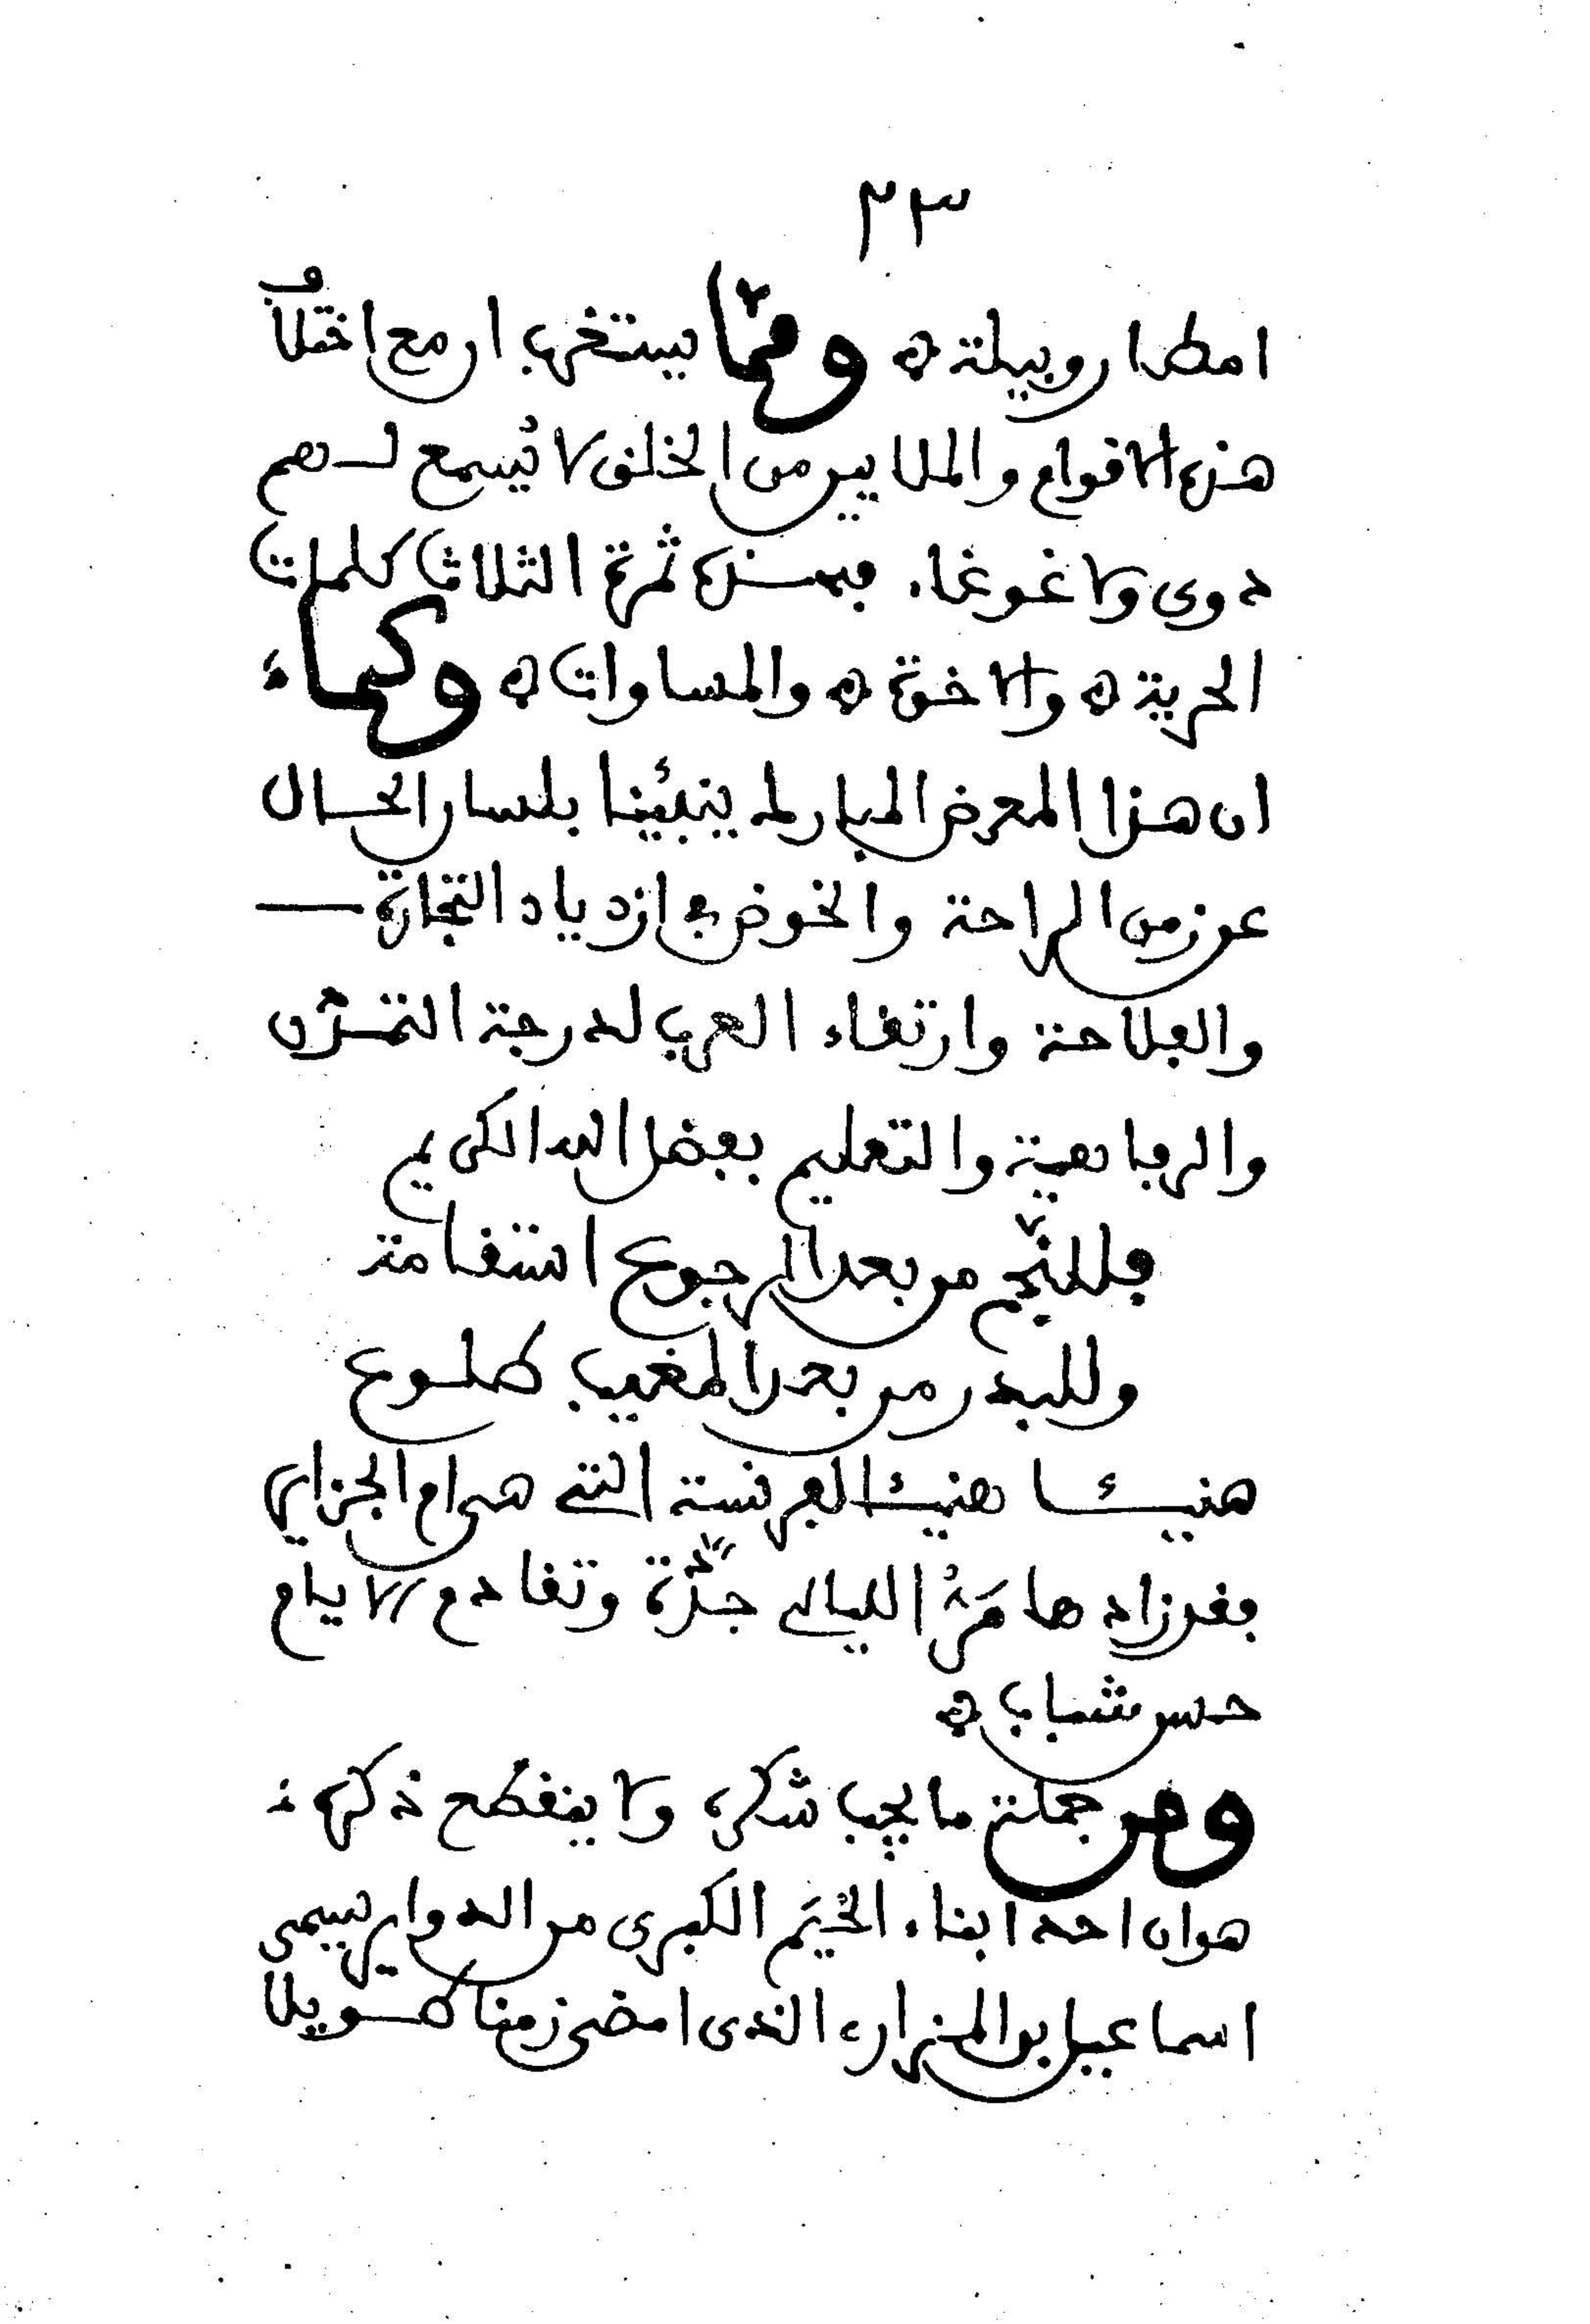 ٢٣
امطار وبيلة ه ومما يستغرب ان مع اختلاف
هذه الاقوام والملايين من الخلق لا يُسمع لهم
دوى ولا غوغاء فهذه ثمرة الثلاث كلمات
الحرية ه والاخوة ه والمساوات ه وكما
ان هذا المعرض المبارك ينبئنا بلسان الحال
عن زمن الراحة والخوض في ازدياد التجارة
والفلاحة وارتقاء العرب لدرجة التمدّن
والرفاهية والتعليم بفضل الله الكريم
فللنّجم من بعد الرجوع استقامة
وللبدر من بعد المغيب طلوع
هنيئا هنيئا لفرنسة التي هى ام الجزاير
فقد زادها مَرُّ الليالى جدّة وتقادم الايام
حسن شباب ه
ومن جملة ما يجب شكره ولا ينقطع ذكره
هو ان احد ابناء الخيَم الكبرى من الدواير يسمى
اسماعيل بن المزارى الذى امضى زمنا طويلا